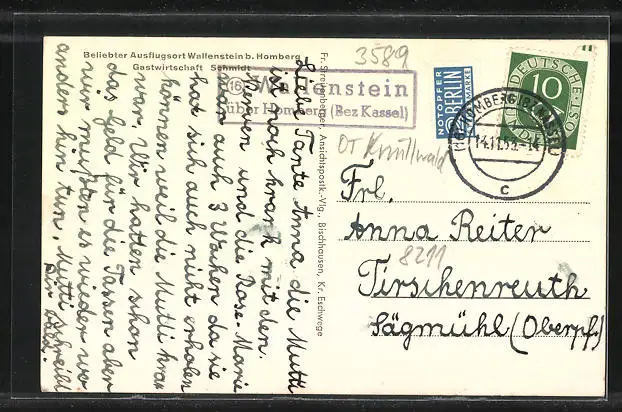 Beliebter Ausflugsort Wallenstein b. Homberg
Gastwirtschaft Schmidt
3589
(16) Wallenstein
über Homberg (Bez Kassel)
Fr. Streichsberger, Ansichtspostk.-Vlg., Bischhausen, Kr. Eschwege
OT Knüllwald
NOTOPFER
2 BERLIN
STEUERMARKE
DEUTSCHE
10
HOMBERG (BZ KASSEL)
14.11.53.-14
c
Frl.
Anna Reiter
8211
Tirschenreuth
Sägmühl (Oberpf.)
Liebe Tante Anna die Mutti
ist noch krank mit den
Nerven und die Rose-Marie
war auch 3 Wochen da sie
hat sich auch nicht erholen
können weil die Mutti krank
war. Wir hatten schon
das Geld für die Tassen aber
wir mußten es wieder wo
anders hin tun. Mutti schreibt